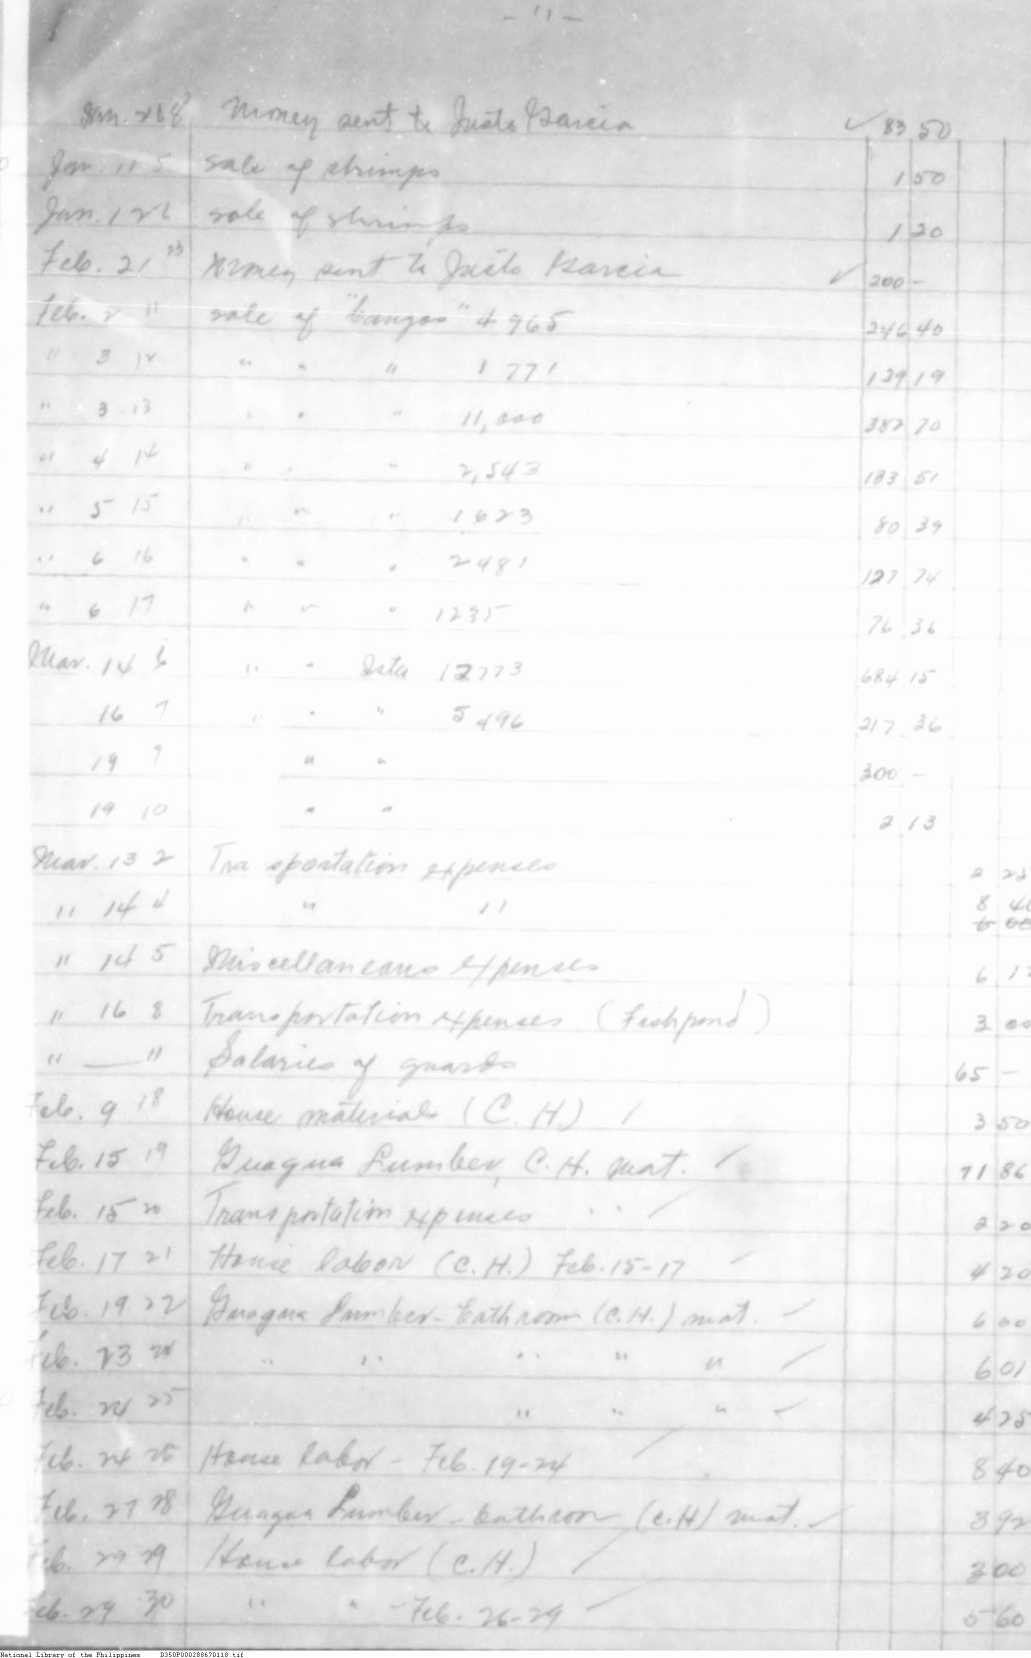 - 11 -
Jan. 26 8 Money sent to Justo Garcia ✓ 83 50
Jan. 11 5 sale of shrimps 1 50
Jan. 12 6 sale of shrimps 1 20
Feb. 21 23 Money sent to Justo Garcia ✓ 200 -
Feb. 2 11 sale of "bangos" 4965 246 40
" 3 12 " " " 1771 139 19
" 3 13 " " " 11,000 382 70
" 4 14 " " " 2,543 183 51
" 5 15 " " " 1623 80 39
" 6 16 " " " 2481 127 74
" 6 17 " " " 1235 76 36
Mar. 14 6 " " Isda 12773 684 15
16 7 " " " 5496 217 36
19 9 " " 300 -
19 10 " " 2 13
Mar. 13 2 Tra sportation expenses 2
" 14 4 " " 8
" 14 5 Miscellaneous expenses 6
" 16 8 Transportation expenses (Fishpond) 3 00
" — " Salaries of guards 65 -
Feb. 9 18 House materials (C. H) / 3 50
Feb. 15 19 Guagua Lumber, C. H. mat. ✓ 71 86
Feb. 15 20 Transportation expenses " " / 2 20
Feb. 17 21 House labor (C. H.) Feb. 15-17 ✓ 4 20
Feb. 19 22 Guagua Lumber - bathroom (C. H.) mat. ✓ 6 00
Feb. 23 24 " " " " " / 6 01
Feb. 24 25 " " " ✓ 4 25
Feb. 24 26 House labor - Feb. 19-24 / 8 40
Feb. 27 28 Guagua Lumber - bathroom (C.H) mat. ✓ 3 92
Feb. 29 29 House labor (C. H.) / 3 00
Feb. 29 30 " " - Feb. 26-29 ✓ 5 60
National Library of the Philippines D350P000288670118.tif